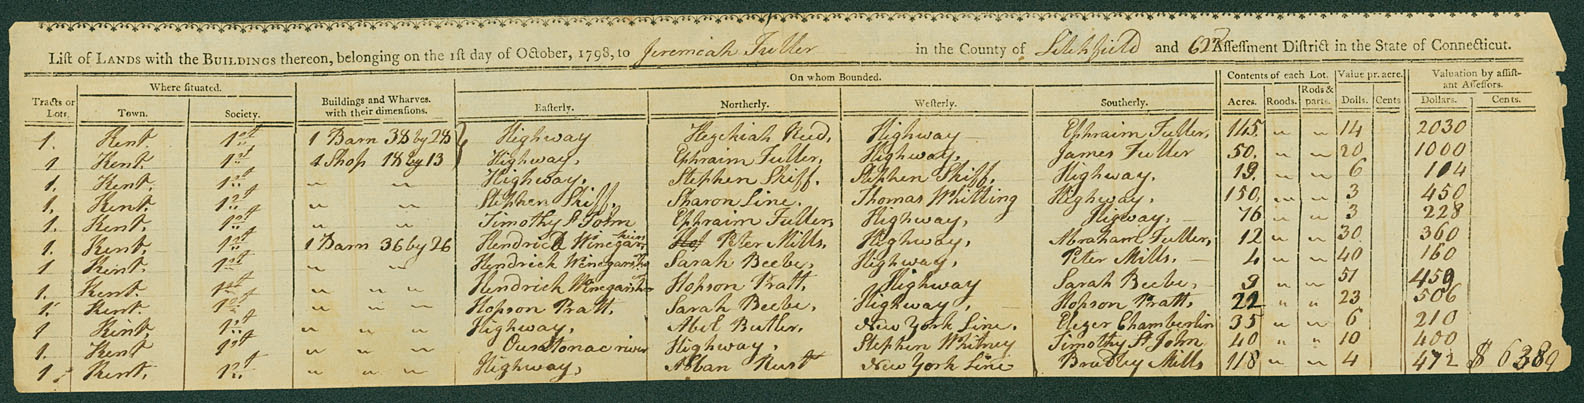 List of LANDS with the BUILDINGS thereon, belonging on the 1st day of October, 1798, to Jeremiah Fuller in the County of Litchfield and 622 Assessment District in the State of Connecticut.
Tracts or Lots. Where situated. Buildings and Wharves. with their dimensions. On whom Bounded. Contents of each Lot. Value pr. acre. Valuation by assistant Assessors.
Town. Society. Easterly. Northerly. Westerly. Southerly. Acres. Roods. Rods & parts. Dolls. Cents Dollars. Cents.
1. Kent. 1st 1 Barn 38 by 28 Highway Hezehiah Reed, Highway Ephraim Fuller, 145. " " 14 2030
1 Kent. 1st 1 Shop 18 by 13 Highway, Ephraim Fuller, Highway, James Fuller 50. " " 20 1000
1. Kent. 1st " " Highway, Stephen Skiff, Stephen Skiff, Highway, 19. " " 6 114
1. Kent 1st " " Stephen Skiff, Sharon Line, Thomas Whitting Highway, 150, " " 3 450
1. Kent. 1st " " Timothy St John Ephraim Fuller, Highway, Higway, 76 " " 3 228
1. Kent, 1st 1 Barn 36 by 26 Hendrick Winegar Peter Mills, Highway, Abraham Fuller, 12 " " 30 360
1 Kent. 1st " " Hendrick Winegars Sarah Beebe, Highway, Peter Mills. 4 " " 40 160
1. Kent. 1st " " " Hendrick Winegars Hopson Pratt, Highway Sarah Beebe, 9 " " 51 459
1. Kent. 1st " " " Hopson Pratt. Sarah Beebe, Highway Hopson Pratt, 22 " " 23 506
1 Kent. 1st " " " Highway, Abel Butler, New York Line. Elezer Chamberlin 35 " " 6 210
1. Kent 1st " " " Ousatonac river Highway, Stephen Whitney Timothy St John 40 " " 10 400
1. Kent. 1st " " " Highway, Alban Rust New York Line Bradley Mills 118 " " 4 472 $6389